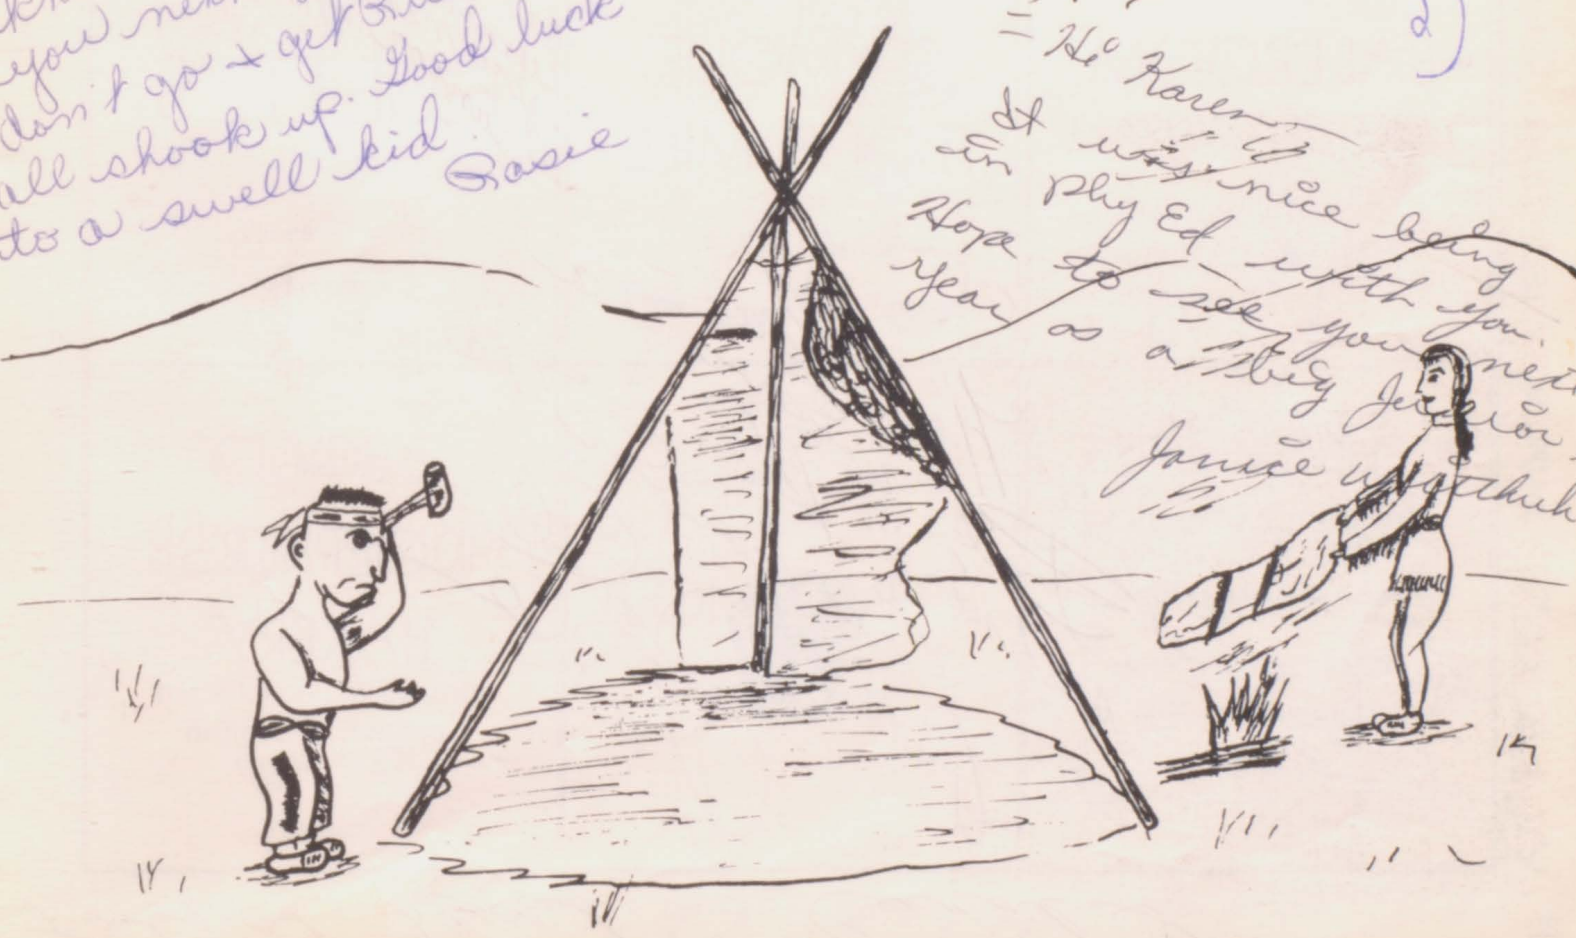 you
don't go + get
all shook up. Good luck
to a swell kid.
Rosie
2)
= Hi Karen,
It was nice being
in Phy Ed with you.
Hope to see you next
year as a big Junior.
Janice